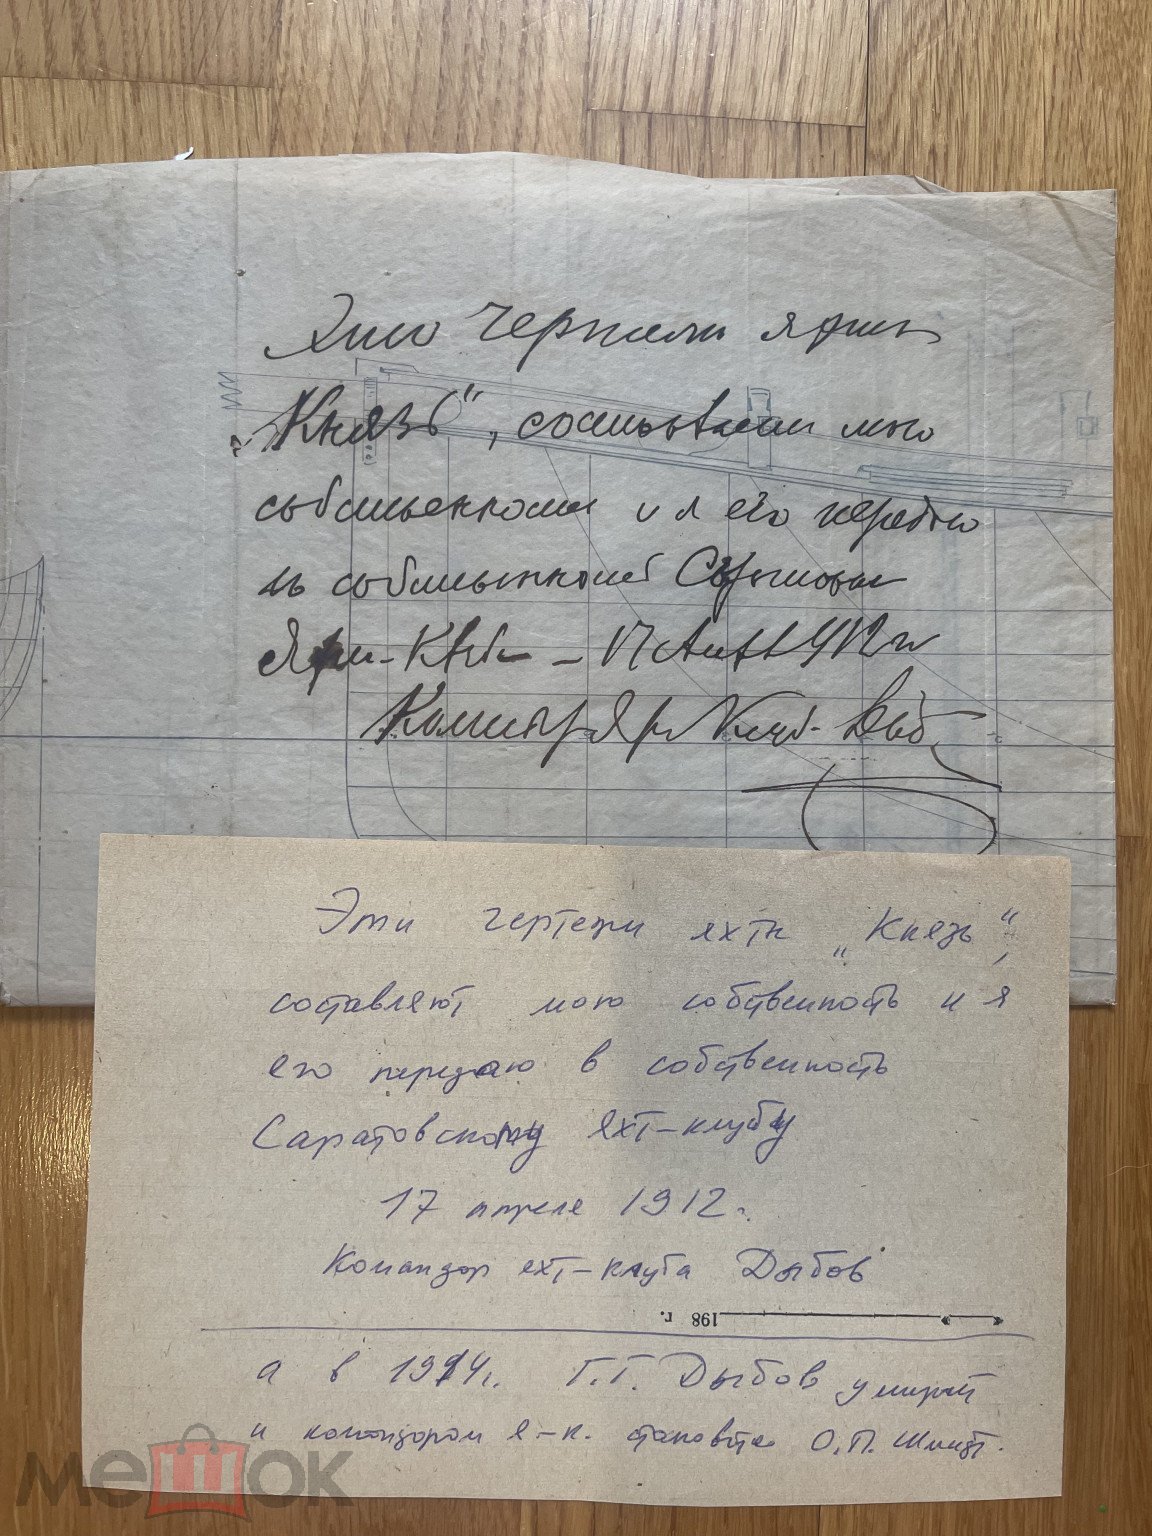 Эти чертежи яхты
„Князь", составляют мою
собственность и я его передаю
в собственность Саратовск
Яхт-Клуб – 17 Апр 1912 г
Командор Ях Клуб Дыб
Эти чертежи яхты „Князь",
составляют мою собственность и я
его передаю в собственность
Саратовскому Яхт-клубу
17 апреля 1912 г.
Командор яхт-клуба Дыбов
198 г.
а в 1914г. Г.Г. Дыбов умирает
и командором я-к. становится О.П. Шмидт.
мешок